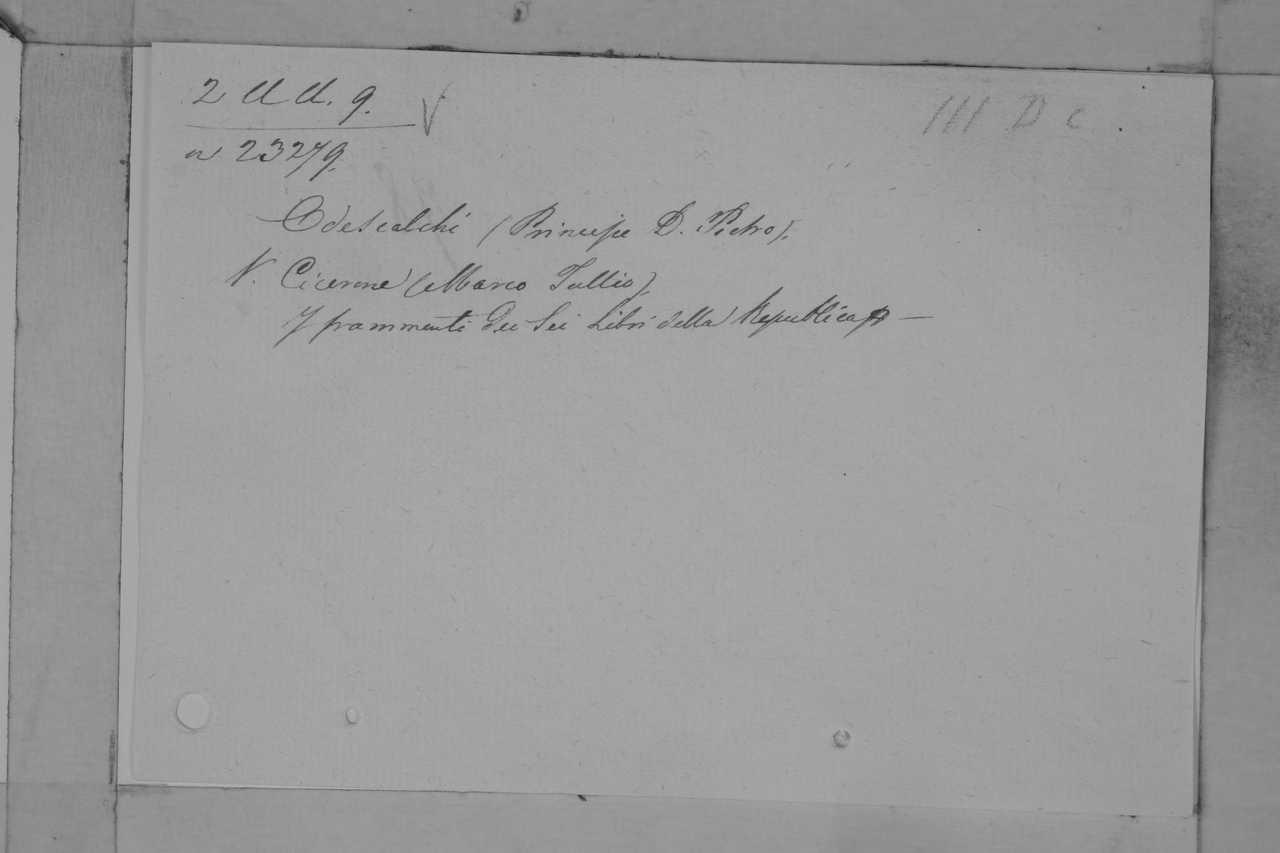 2 d d. 9.
III D c
n 23279.
Odescalchi (Principe D. Pietro).
V. Cicerone (Marco Tullio)
I frammenti dei Sei Libri della Republica —